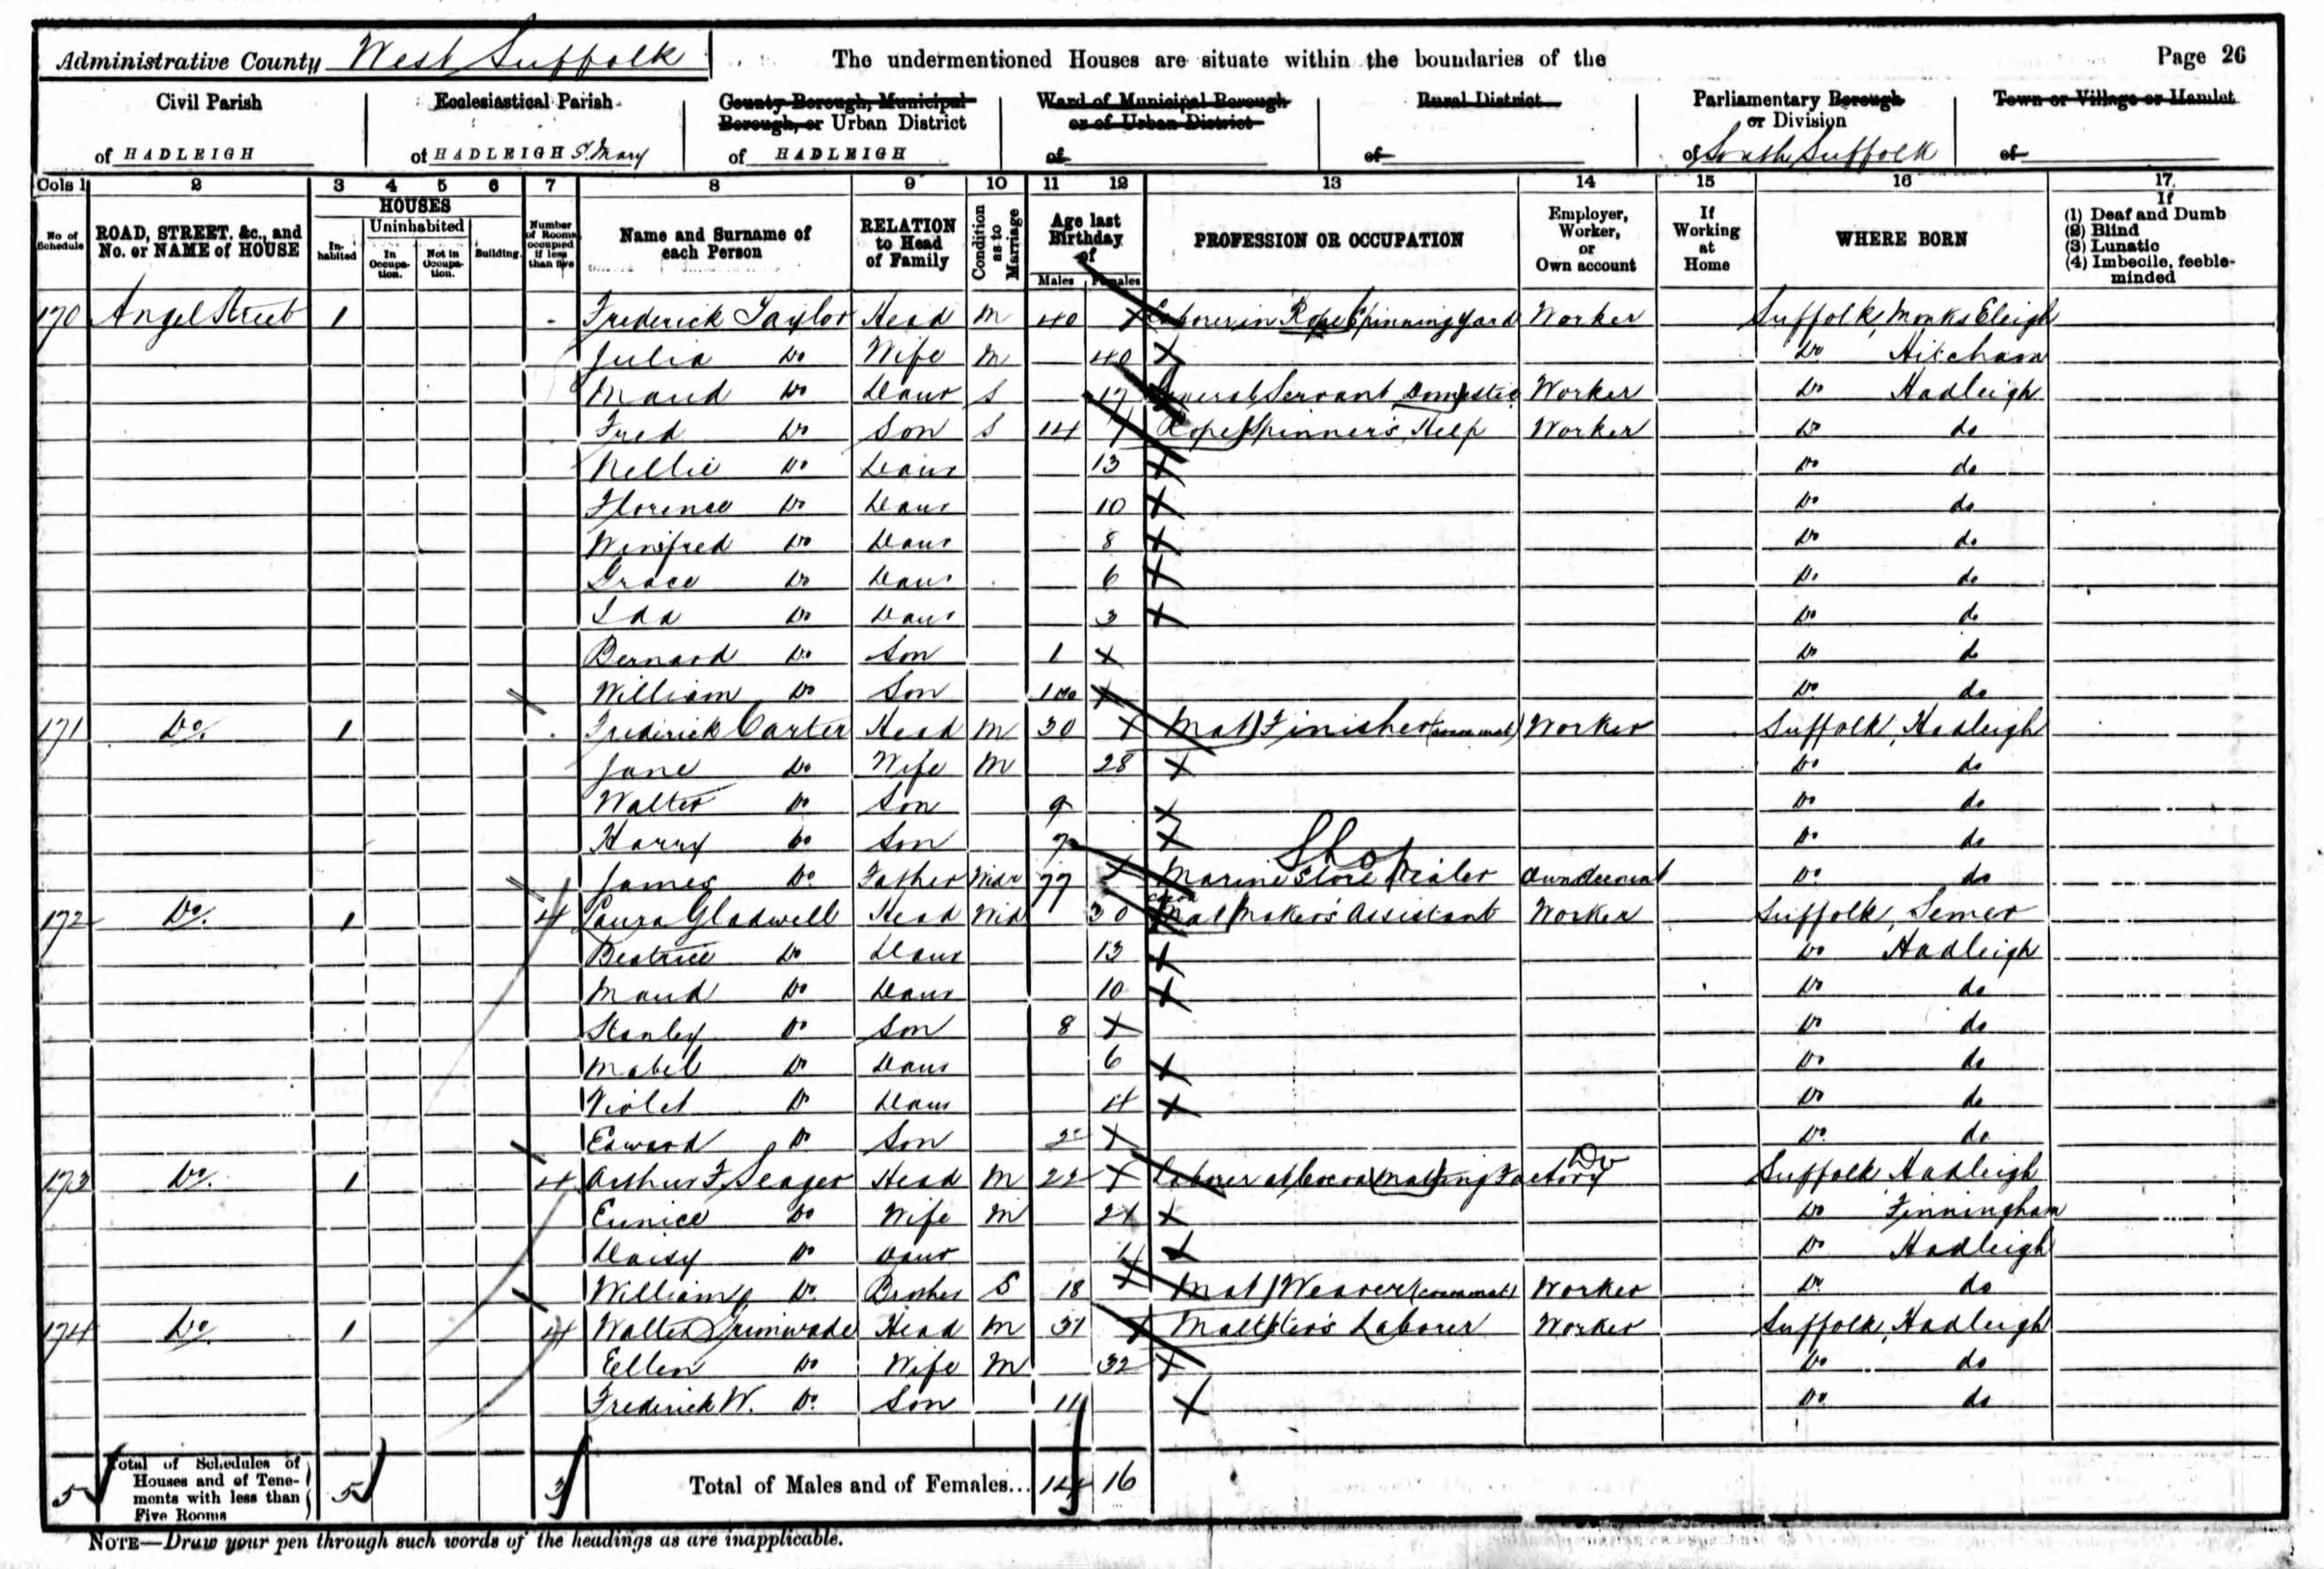 Administrative County West Suffolk The undermentioned Houses are situate within the boundaries of the Page 26
Civil Parish Ecclesiastical Parish County Borough, Municipal Borough, or Urban District Ward of Municipal Borough or of Urban District Rural District Parliamentary Borough or Division Town or Village or Hamlet
of HADLEIGH of HADLEIGH St. Mary of HADLEIGH of of of South Suffolk of
Cols 1 2 3 4 5 6 7 8 9 10 11 12 13 14 15 16 17
No of Schedule ROAD, STREET, &c., and No. or NAME of HOUSE HOUSES Inhabited Uninhabited In Occupation. Not in Occupation. Building Number of Rooms occupied if less than five Name and Surname of each Person RELATION to Head of Family Condition as to Marriage Age last Birthday of Males Females PROFESSION OR OCCUPATION Employer, Worker, or Own account If Working at Home WHERE BORN If (1) Deaf and Dumb (2) Blind (3) Lunatic (4) Imbecile, feeble-minded
170 Angel Street 1 Frederick Taylor Head M 40 X Laborer in Rope Spinning Yard Worker Suffolk, Monks Eleigh
Julia Do Wife M 40 X Do Hitcham
Maud Do Daur S 17 General Servant Domestic Worker Do Hadleigh
Fred Do Son S 14 X Rope Spinner's Help Worker Do do
Nellie Do Daur 13 X Do do
Florence Do Daur 10 X Do do
Winifred Do Daur 8 X Do do
Grace Do Daur 6 X Do do
Ida Do Daur 3 X Do do
Bernard Do Son 1 X Do do
William Do Son 1 mo X Do do
171 Do. 1 Frederick Carter Head M 30 X Mat Finisher (cocoa mat) Worker Suffolk, Hadleigh
Jane Do Wife M 28 X Do do
Walter Do Son 9 X Do do
Harry Do Son 7 X Do do
Shop
James Do Father Widr 77 X Marine Store Dealer Own account Do do
172 Do. 1 4 Laura Gladwell Head Wid 30 Cocoa Mat Maker's Assistant Worker Suffolk, Semer
Beatrice Do Daur 13 X Do Hadleigh
Maud Do Daur 10 X Do do
Stanley Do Son 8 X Do do
Mabel Do Daur 6 X Do do
Violet Do Daur 4 X Do do
Edward Do Son 2 X Do do
173 Do. 1 4 Arthur F. Seager Head M 22 X Laborer at Cocoa Matting Factory Do Suffolk Hadleigh
Eunice Do Wife M 21 X Do Finningham
Daisy Do Daur X Do Hadleigh
William Do Brother S 18 X Mat Weaver (cocoa mat) Worker Do do
174 Do. 1 4 Walter Grimwade Head M 31 X Maltster's Laborer Worker Suffolk, Hadleigh
Ellen Do Wife M 32 X Do do
Frederick W. Do Son 11 X Do do
5 Total of Schedules of Houses and of Tenements with less than Five Rooms 5 3 Total of Males and of Females... 14 16
NOTE—Draw your pen through such words of the headings as are inapplicable.